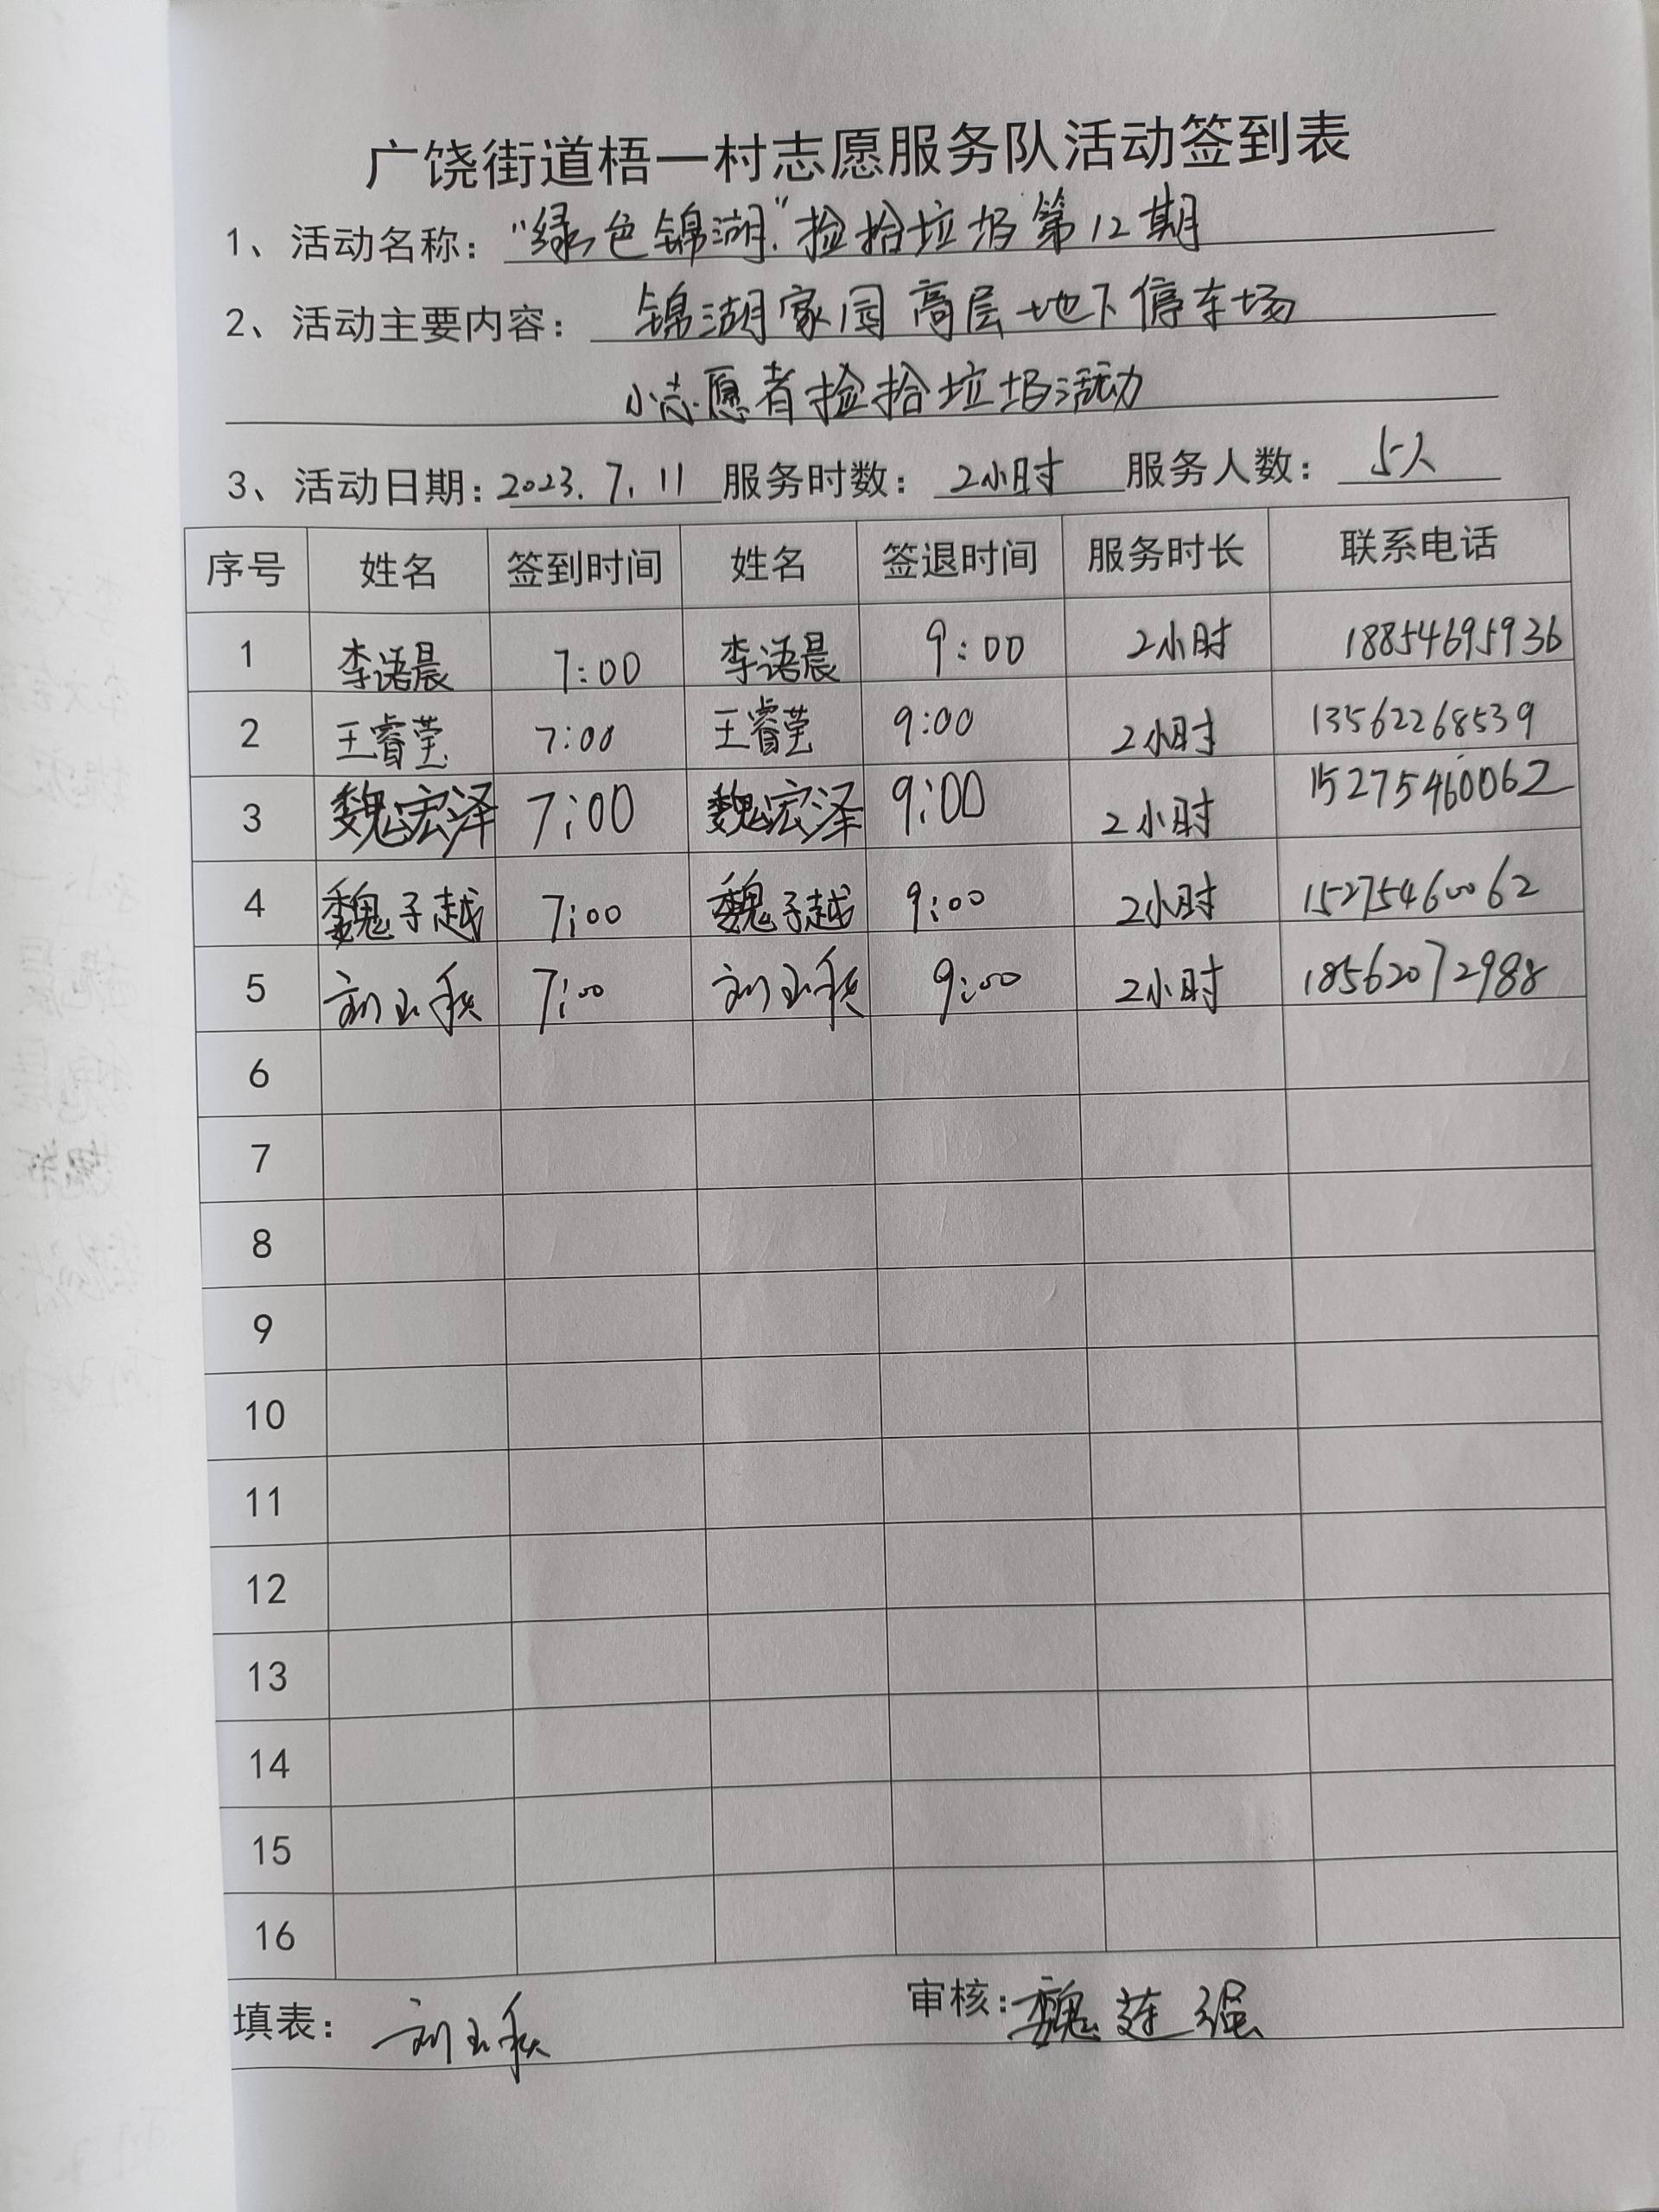 广饶街道梧一村志愿服务队活动签到表
1、活动名称：“绿色锦湖”捡拾垃圾第12期
2、活动主要内容： 锦湖家园高层地下停车场
小志愿者捡拾垃圾活动
3、活动日期：2023.7.11 服务时数：2小时 服务人数：5人
序号 姓名 签到时间 姓名 签退时间 服务时长 联系电话
1 李语晨 7:00 李语晨 9:00 2小时 18854695936
2 王睿莹 7:00 王睿莹 9:00 2小时 13562268539
3 魏宏泽 7:00 魏宏泽 9:00 2小时 15275460062
4 魏子越 7:00 魏子越 9:00 2小时 15275460062
5 刘玉秋 7:00 刘玉秋 9:00 2小时 18562072988
6
7
8
9
10
11
12
13
14
15
16
填表： 刘玉秋 审核：魏莲强